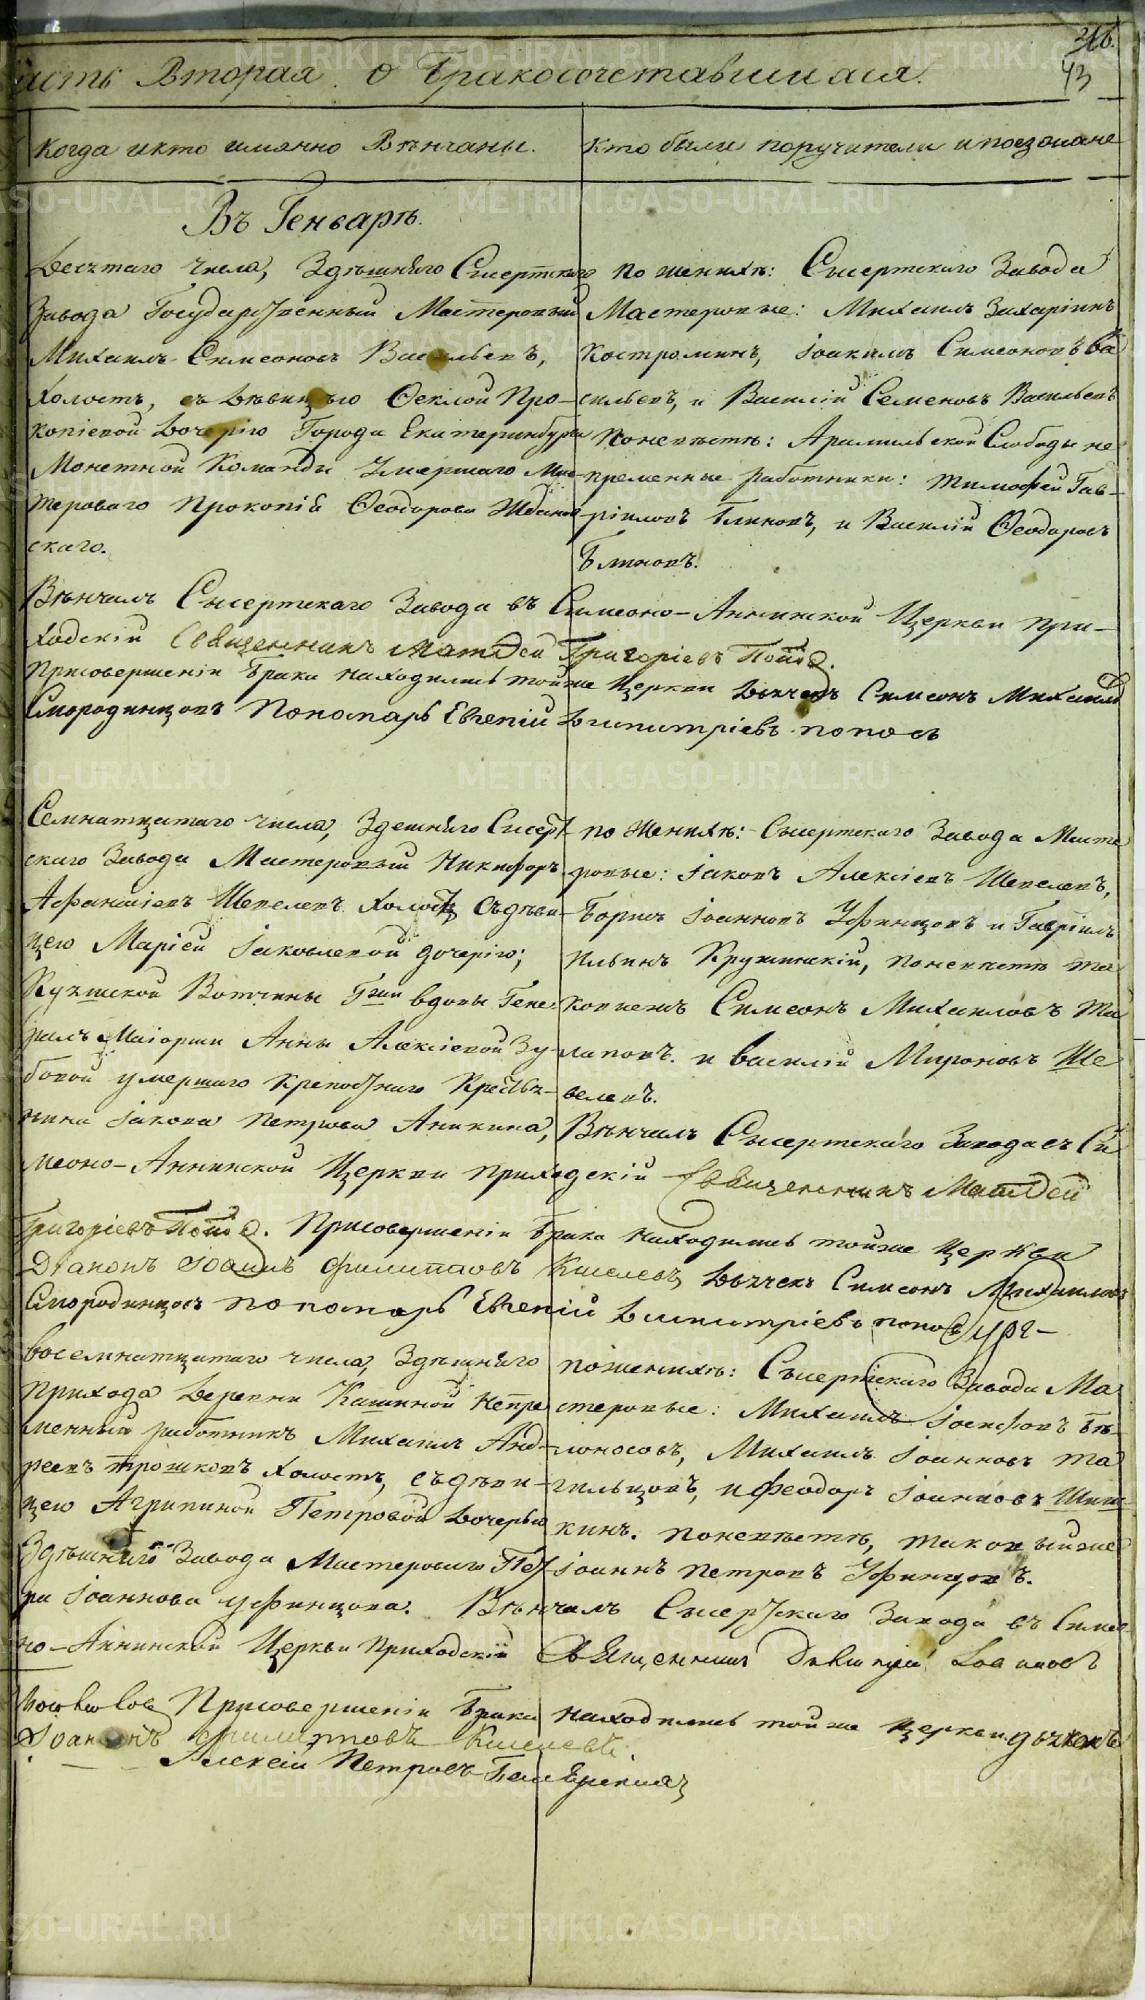 316.
43
Часть Вторая о бракосочетавшихся.
Когда и кто имянно Вѣнчаны.
Кто были поручители и поезжане
Въ Генварѣ.
Десятаго числа, Здѣшняго Сысертскаго
Завода Государственный Мастеровый
Михаилъ Симеоновъ Васильевъ,
холостъ, съ дѣвицъю Ѳеклой Про-
копіевой дочерію Города Екатеринбурга
Монетной Команды Умершаго Мас-
тероваго Прокопія Ѳеодорова
скаго.
по женихѣ: Сысертскаго Завода
Мастеровые: Михаилъ Захаріинъ
Костроминъ, Іоакимъ Симеоновъ Ва
сильевъ, и Василій Семеновъ Васильевъ
по невѣстѣ: Арамильской Слободы не
пременные работники: Тимофей Гав-
ріиловъ Блиновъ, и Василій Ѳеодоровъ
Блиновъ.
Вѣнчалъ Сысертскаго Завода въ Симеоно-Аннинской Церкви при-
ходскій Священникъ Матѳей Григоріевъ Поповъ.
При совершеніи брака находились тойже Церкви Дьячекъ Симеонъ Михаиловъ
Смородинцовъ Пономарь Евгеній Димитріевъ поповъ
Семнатцатаго числа, Здешняго Сысерт
скаго Завода Мастеровый Никифоръ
Афанасіевъ Шепелевъ холостъ съ дѣви
цею Маріей Іаковлевой дочерію;
Вотчины Гжи вдовы Гене-
ралъ Маіорши Анны Алексіевой Зу
бовой умершаго крепостнаго Крестья-
нина Іакова Петрова Аникина,
по Женихѣ: Сысертскаго Завода Масте
ровые: Іаковъ Алексіевъ Шепелевъ,
Борисъ Іоанновъ Уфинцовъ и Гавріилъ
Ильинъ Кружинскій, по невѣстѣ та
ковыежъ Симеонъ Михаиловъ Та
лаповъ. и василій Мироновъ Ше
велевъ.
Вѣнчалъ Сысертскаго Завода въ Си
меоно-Аннинской Церкви приходскій Священникъ Матѳей
Григоріевъ Поповъ. При совершеніи брака находились тойже Церкви
Діаконъ Іоаннъ Филиповъ Киселевъ, Дьячекъ Симеонъ Михаиловъ
Смородинцовъ пономарь Евгеній Димитріевъ поповъ
восемнатцатаго числа, Здѣшняго
прихода Деревни Кашиной Непре
менный работникъ Михаилъ Анд-
реевъ Трошковъ холостъ, съ дѣви-
цею Агрипиной Петровой дочерью
Здѣшняго Завода Мастероваго Пет
ра Іоаннова уфинцова.
по женихѣ: Сысертскаго Завода Ма
стеровые: Михаилъ Іосифовъ Бѣ-
лоносовъ, Михаилъ Іоанновъ Та
гильцовъ, и Феодоръ Іоанновъ Шиш
кинъ. по невѣстѣ, таковыйже
Іоаннъ Петровъ Уфинцовъ.
Вѣнчалъ Сысертскаго Завода въ Симео
но-Аннинской Церкви Приходскій Священникъ
При совершеніи брака находились тойже церкви
Филиповъ Киселевъ.
Алексій Петровъ